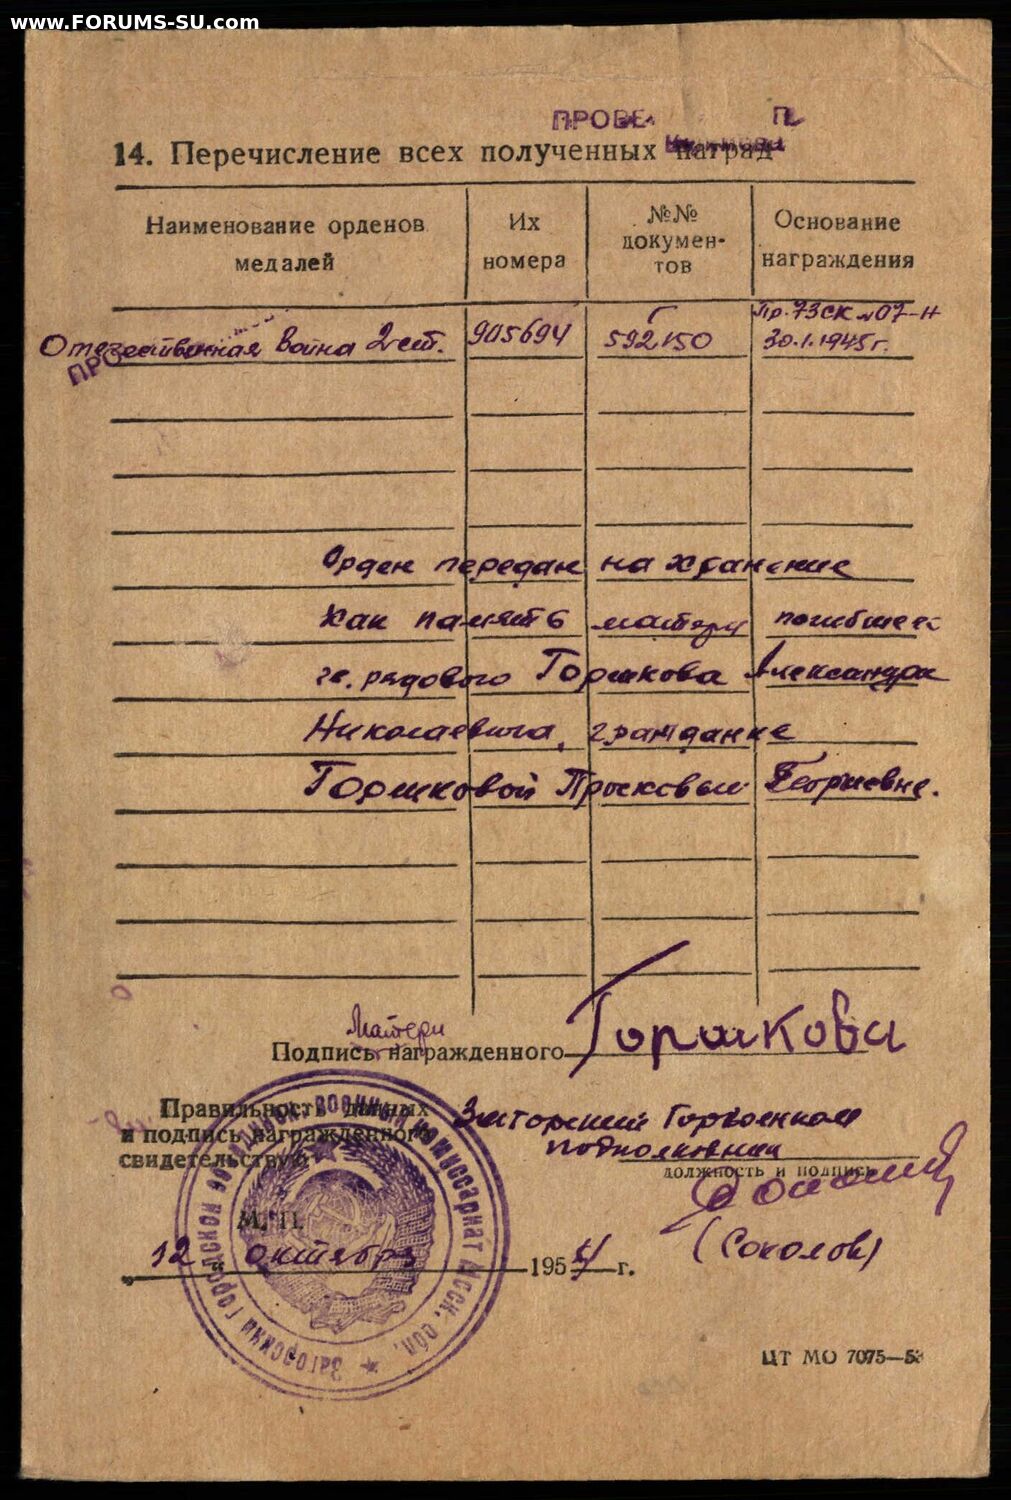 www.FORUMS-SU.com
14. Перечисление всех полученных наград
Наименование орденов медалей
Их номера
№№ докумен-тов
Основание награждения
Отечественная Война 2 ст.
905694
Г 592150
Пр. 73 СК № 07-Н 30.1.1945 г.
Орден передан на хранение
как память матери погибшего
гв. рядового Горшкова Александра
Николаевича, гражданке
Горшковой Просковьи Георгиевне.
Матери
Подпись награжденного Горшкова
Правильность данных
и подпись награжденного
свидетельствую
Загорский Горвоенком
подполковник
должность и подпись
(Соколов)
М. П.
„12“ октября 1954 г.
Загорский городской военный комиссариат Моск. обл.
ЦТ МО 7075—53